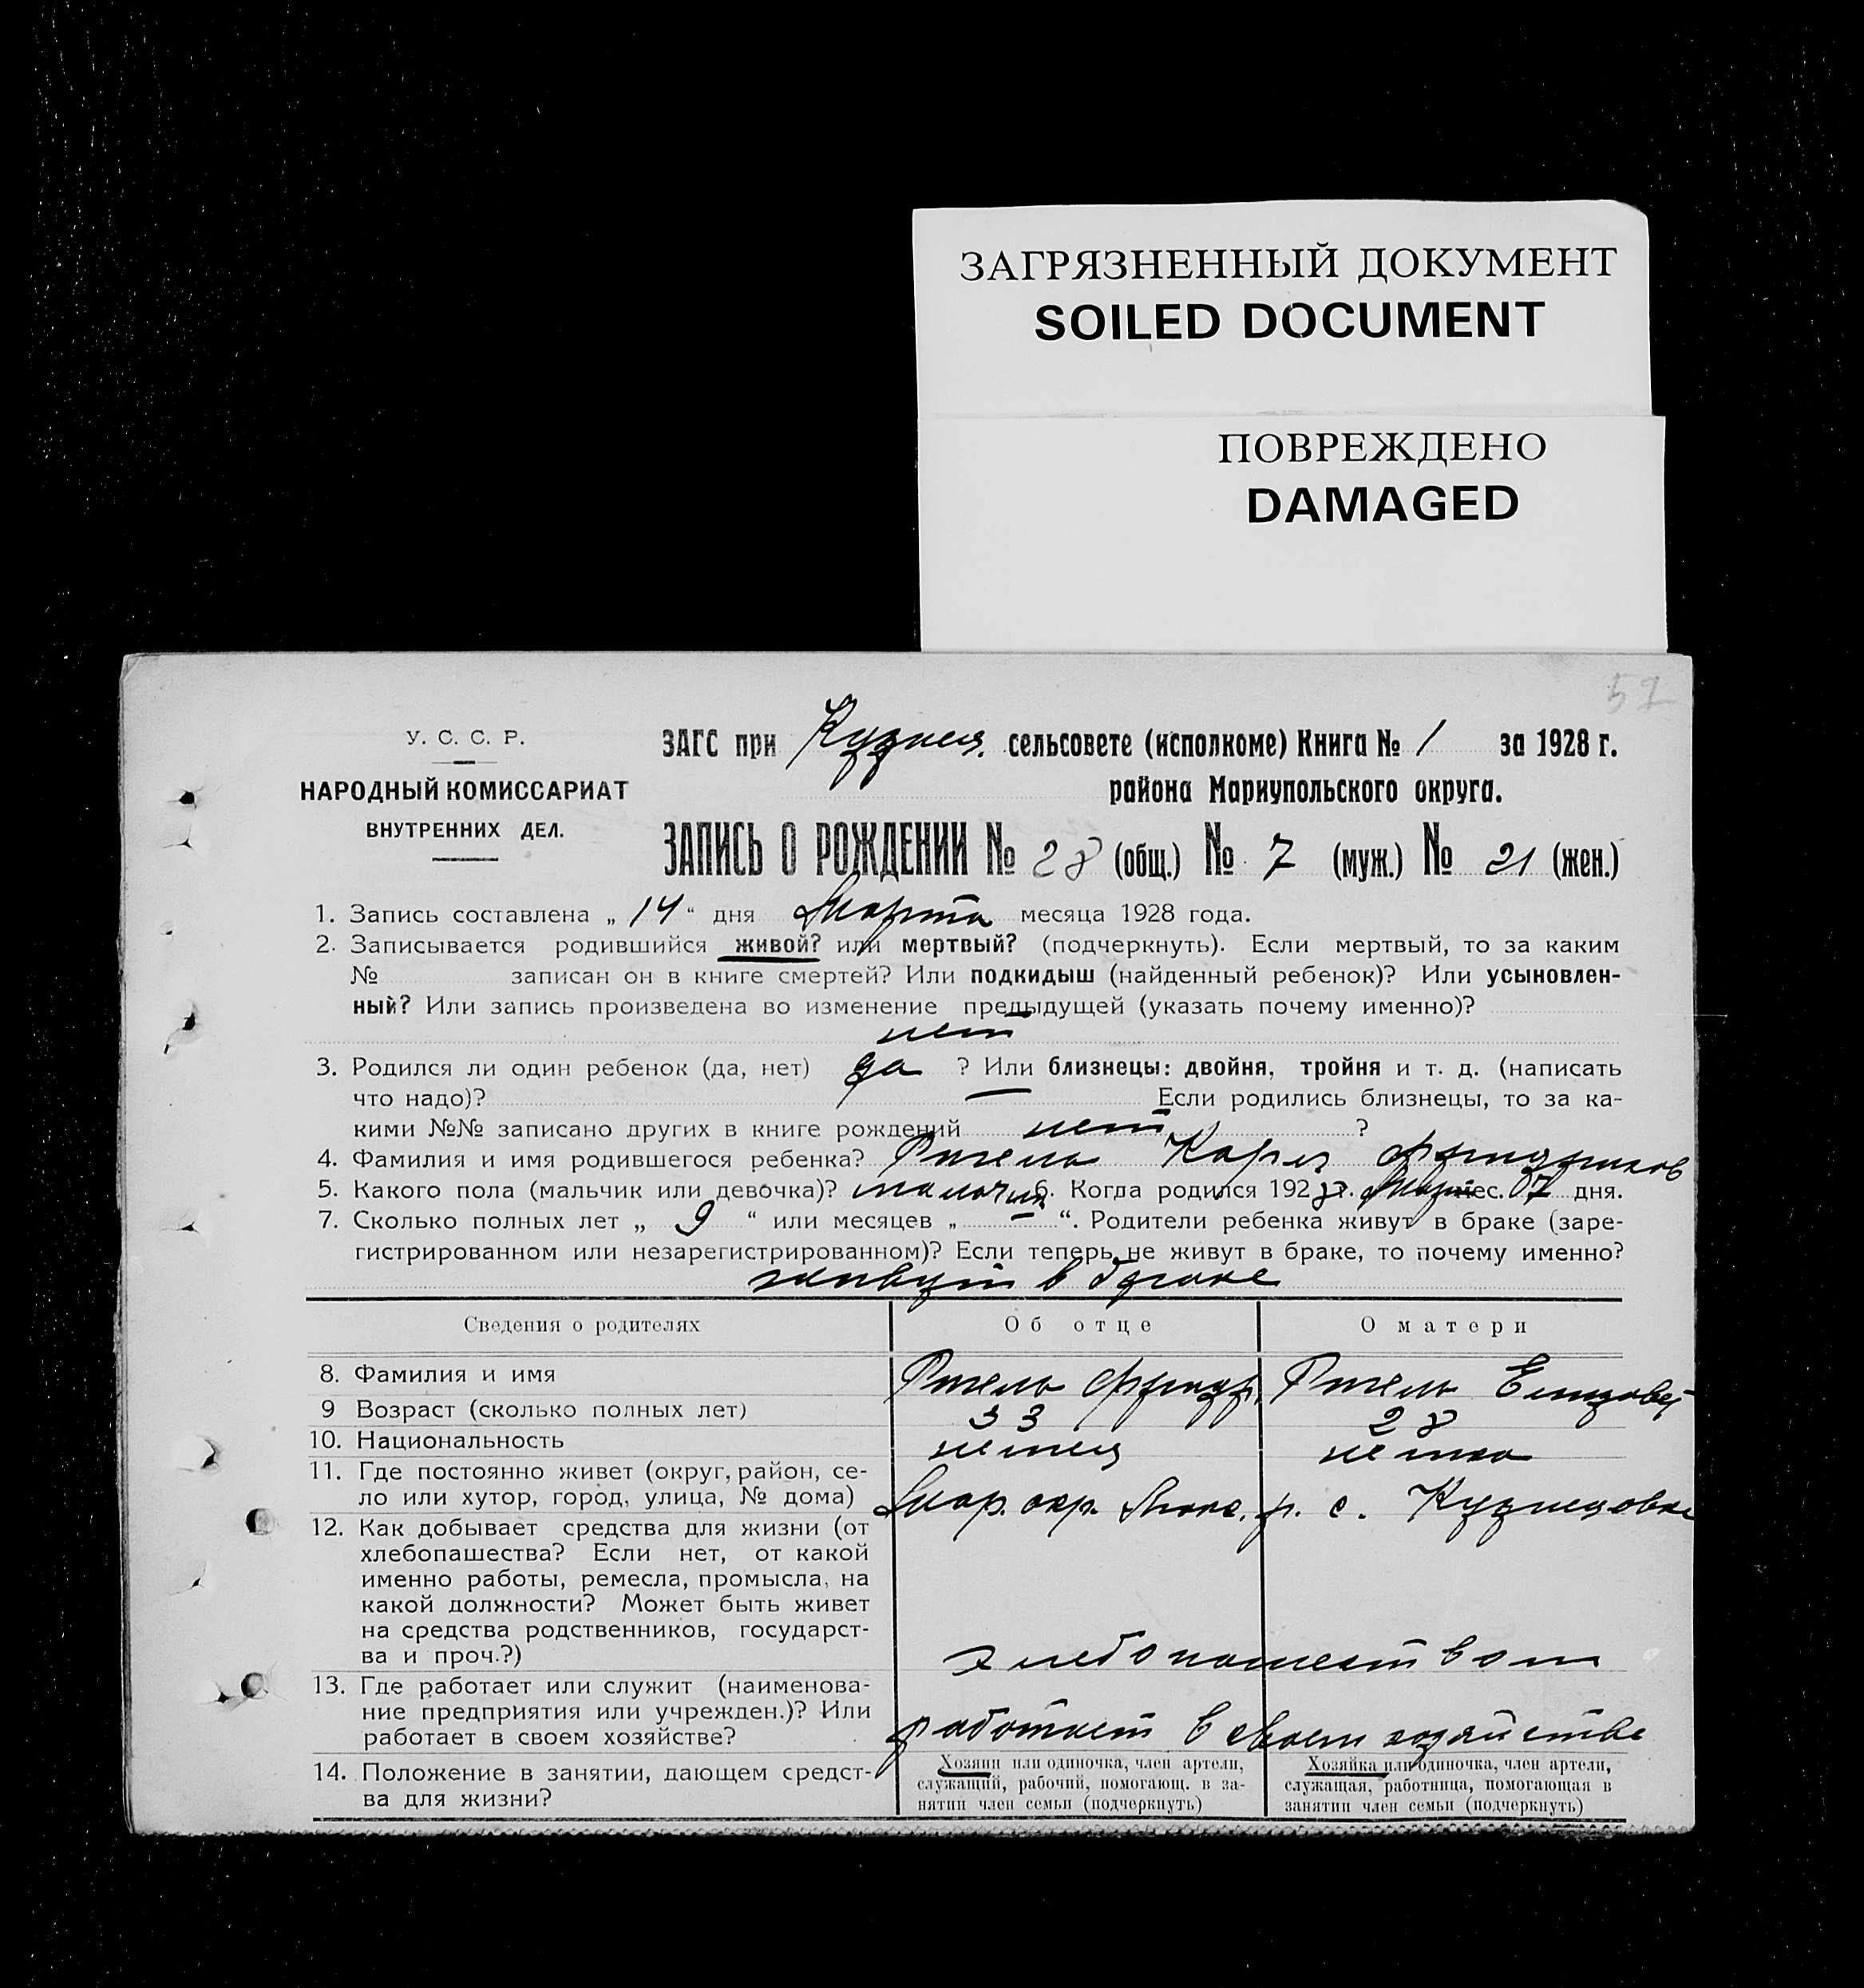 ЗАГРЯЗНЕННЫЙ ДОКУМЕНТ
SOILED DOCUMENT
ПОВРЕЖДЕНО
DAMAGED
57
У. С. С. Р.
НАРОДНЫЙ КОМИССАРИАТ
ВНУТРЕННИХ ДЕЛ.
ЗАГС при Кузнец. сельсовете (исполкоме) Книга № 1 за 1928 г.
района Мариупольского округа.
ЗАПИСЬ О РОЖДЕНИИ № 28 (общ.) № 7 (муж.) № 21 (жен.)
1. Запись составлена „ 14 " дня Марта месяца 1928 года.
2. Записывается родившийся живой? или мертвый? (подчеркнуть). Если мертвый, то за каким
№ записан он в книге смертей? Или подкидыш (найденный ребенок)? Или усыновлен-
ный? Или запись произведена во изменение предыдущей (указать почему именно)?
нет
3. Родился ли один ребенок (да, нет) да ? Или близнецы: двойня, тройня и т. д. (написать
что надо)? — Если родились близнецы, то за ка-
кими №№ записано других в книге рождений нет ?
4. Фамилия и имя родившегося ребенка? Карл
5. Какого пола (мальчик или девочка)? мальчик 6. Когда родился 1928 г. Март мес. 07 дня.
7. Сколько полных лет „ 9 " или месяцев „ — ". Родители ребенка живут в браке (заре-
гистрированном или незарегистрированном)? Если теперь не живут в браке, то почему именно?
живут в браке
Сведения о родителях Об отце О матери
8. Фамилия и имя Фридр. Елизавет
9 Возраст (сколько полных лет) 33 28
10. Национальность немец немка
11. Где постоянно живет (округ, район, се-
ло или хутор, город, улица, № дома) Мар. окр. р. с. Кузнецовка
12. Как добывает средства для жизни (от
хлебопашества? Если нет, от какой
именно работы, ремесла, промысла, на
какой должности? Может быть живет
на средства родственников, государст-
ва и проч.?) хлебопашеством
13. Где работает или служит (наименова-
ние предприятия или учрежден.)? Или
работает в своем хозяйстве? работает в своем хозяйстве
14. Положение в занятии, дающем средст-
ва для жизни?
Хозяин или одиночка, член артели,
служащий, рабочий, помогающ. в за-
нятии член семьи (подчеркнуть)
Хозяйка или одиночка, член артели,
служащая, работница, помогающая в
занятии член семьи (подчеркнуть)